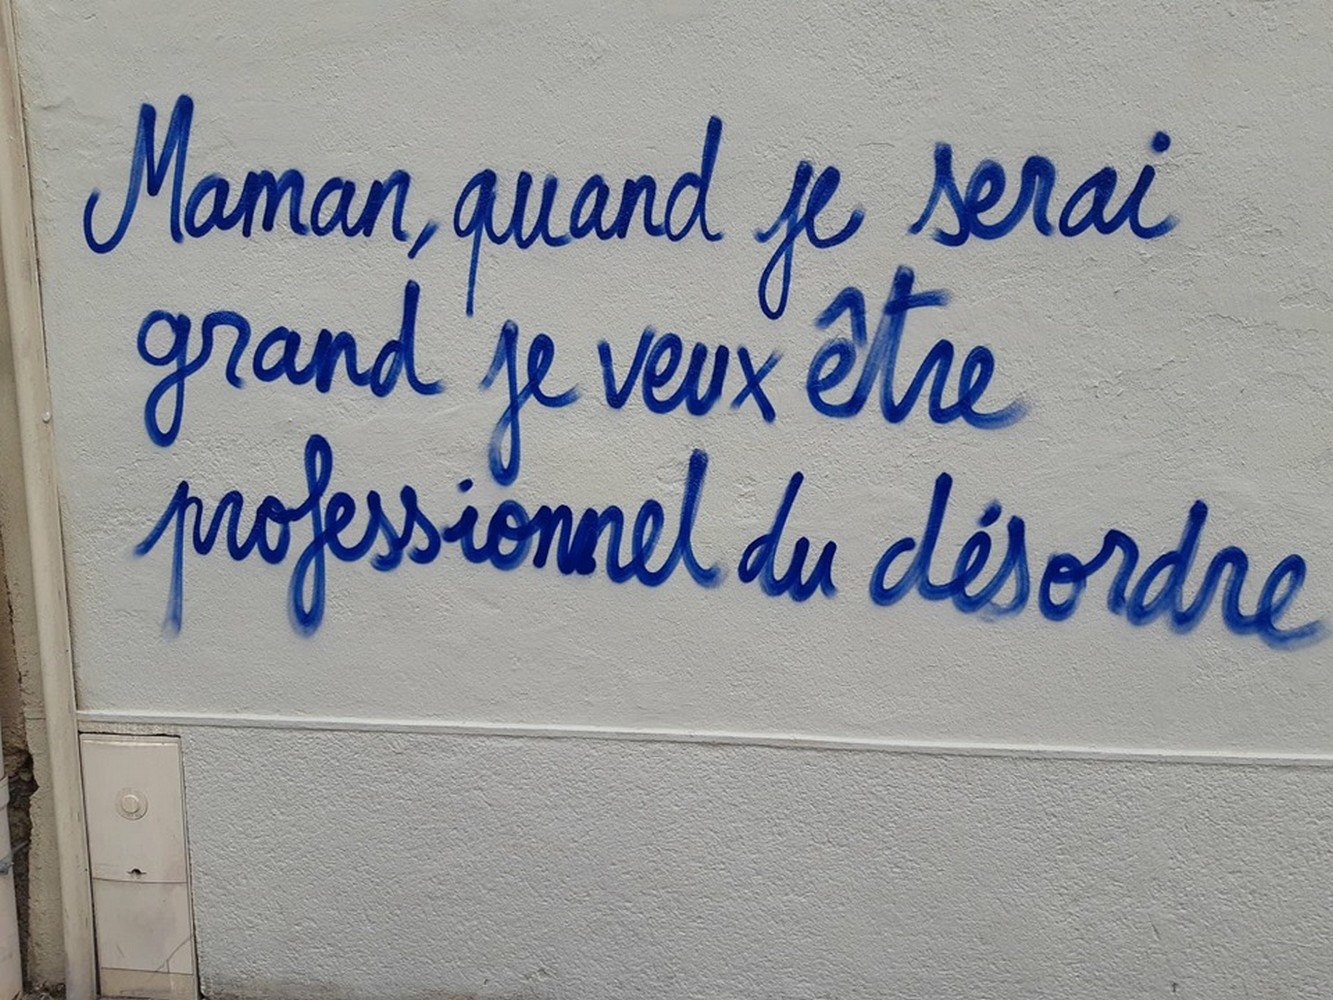 Maman, quand je serai
grand je veux être
professionnel du désordre